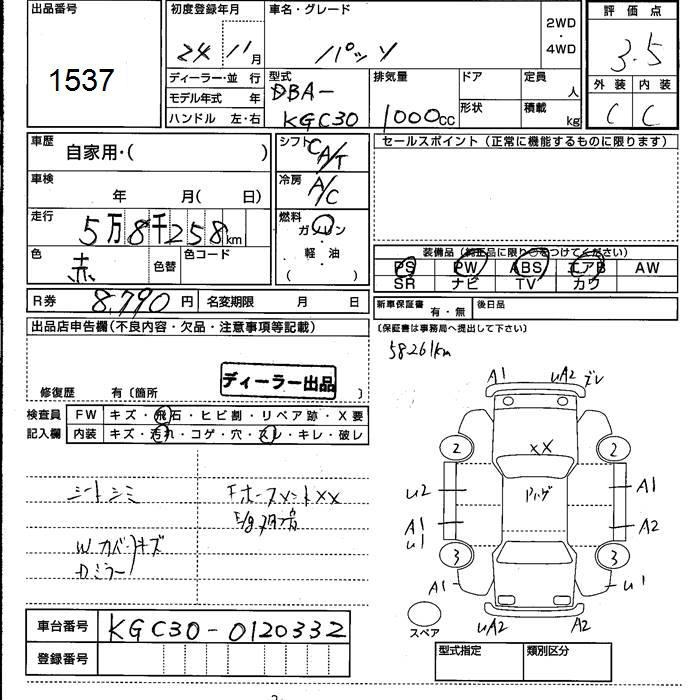 出品番号
1537
初度登録年月
24 11月
車名・グレード
パッソ
2WD
・
4WD
評価点
3.5
外装 内装
C C
ディーラー・並行
モデル年式 年
ハンドル 左・右
型式
DBA-
KGC30
排気量
1000cc
ドア
形状
定員 人
積載 kg
車歴
自家用・( )
車検
年 月( 日)
走行
5万8千258km
色
赤
色替
色コード
シフト
CA/T
冷房
A/C
燃料
ガソリン
・
軽油
( )
セールスポイント(正常に機能するものに限ります)
装備品(純正品に限り○をつけてください)
PS PW ABS エアB AW
SR ナビ TV カワ
R券 8,790円 名変期限 月 日
新車保証書 有・無 後日品
(保証書は事務局へ提出して下さい)
58261km
出品店申告欄(不良内容・欠品・注意事項等記載)
ディーラー出品
修復歴 有〔箇所 〕
検査員
記入欄
FW キズ・飛石・ヒビ割・リペア跡・X要
内装 キズ・汚れ・コゲ・穴・スレ・キレ・破レ
シートシミ
W.カバーキズ
Dミラー
FホースメントXX
A1 UA2 ズレ
2 2
XX
U2 A1
A1 A2
U1
3 3
A1 U1
UA2 A2
スペア
車台番号 KGC30-0120332
登録番号
型式指定 類別区分